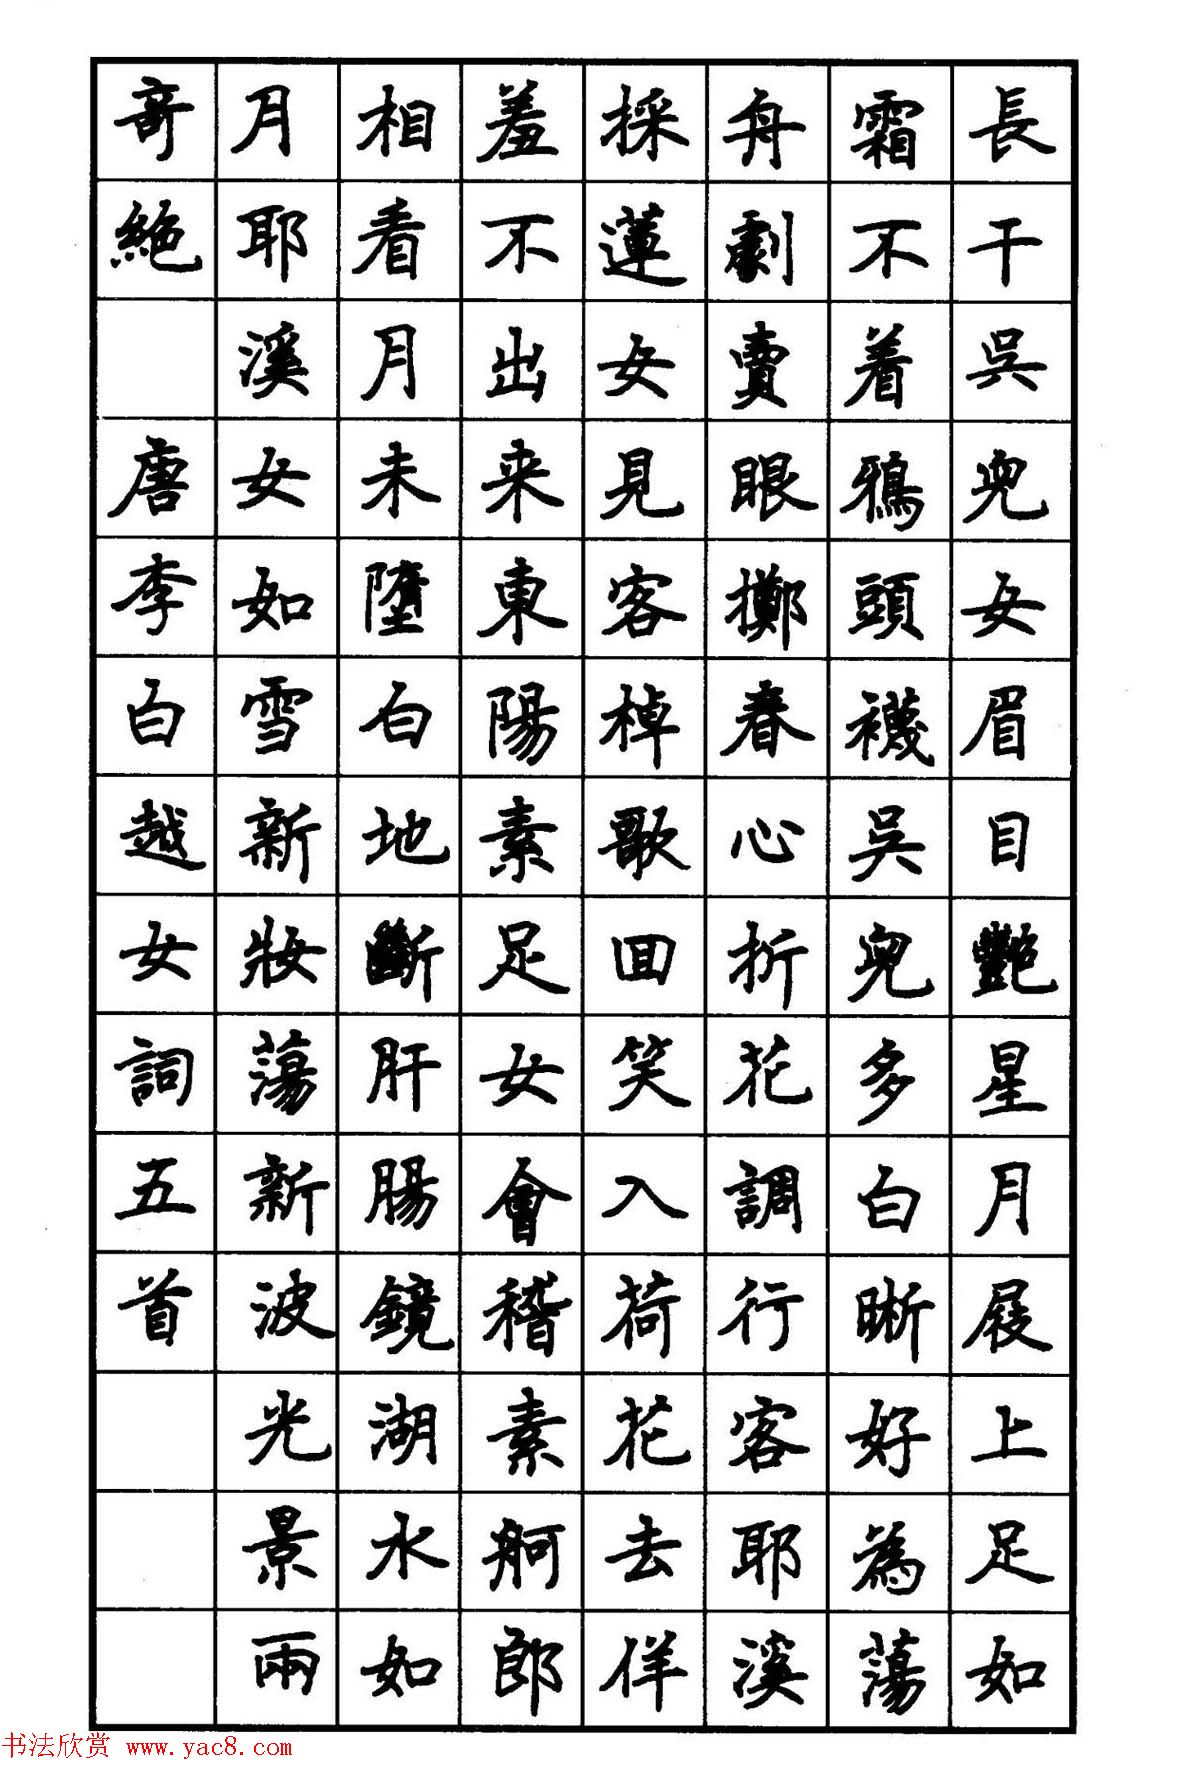 長干吳兒女眉目艷星月屐上足如
霜不着鴉頭襪吳兒多白晰好為蕩
舟劇賣眼擲春心折花調行客耶溪
採蓮女見客棹歌囬笑入荷花去佯
羞不出来東陽素足女會稽素舸郎
相看月未墮白地斷肝腸鏡湖水如
月耶溪女如雪新妝蕩新波光景兩
奇絕 唐李白越女詞五首
书法欣赏 www.yac8.com